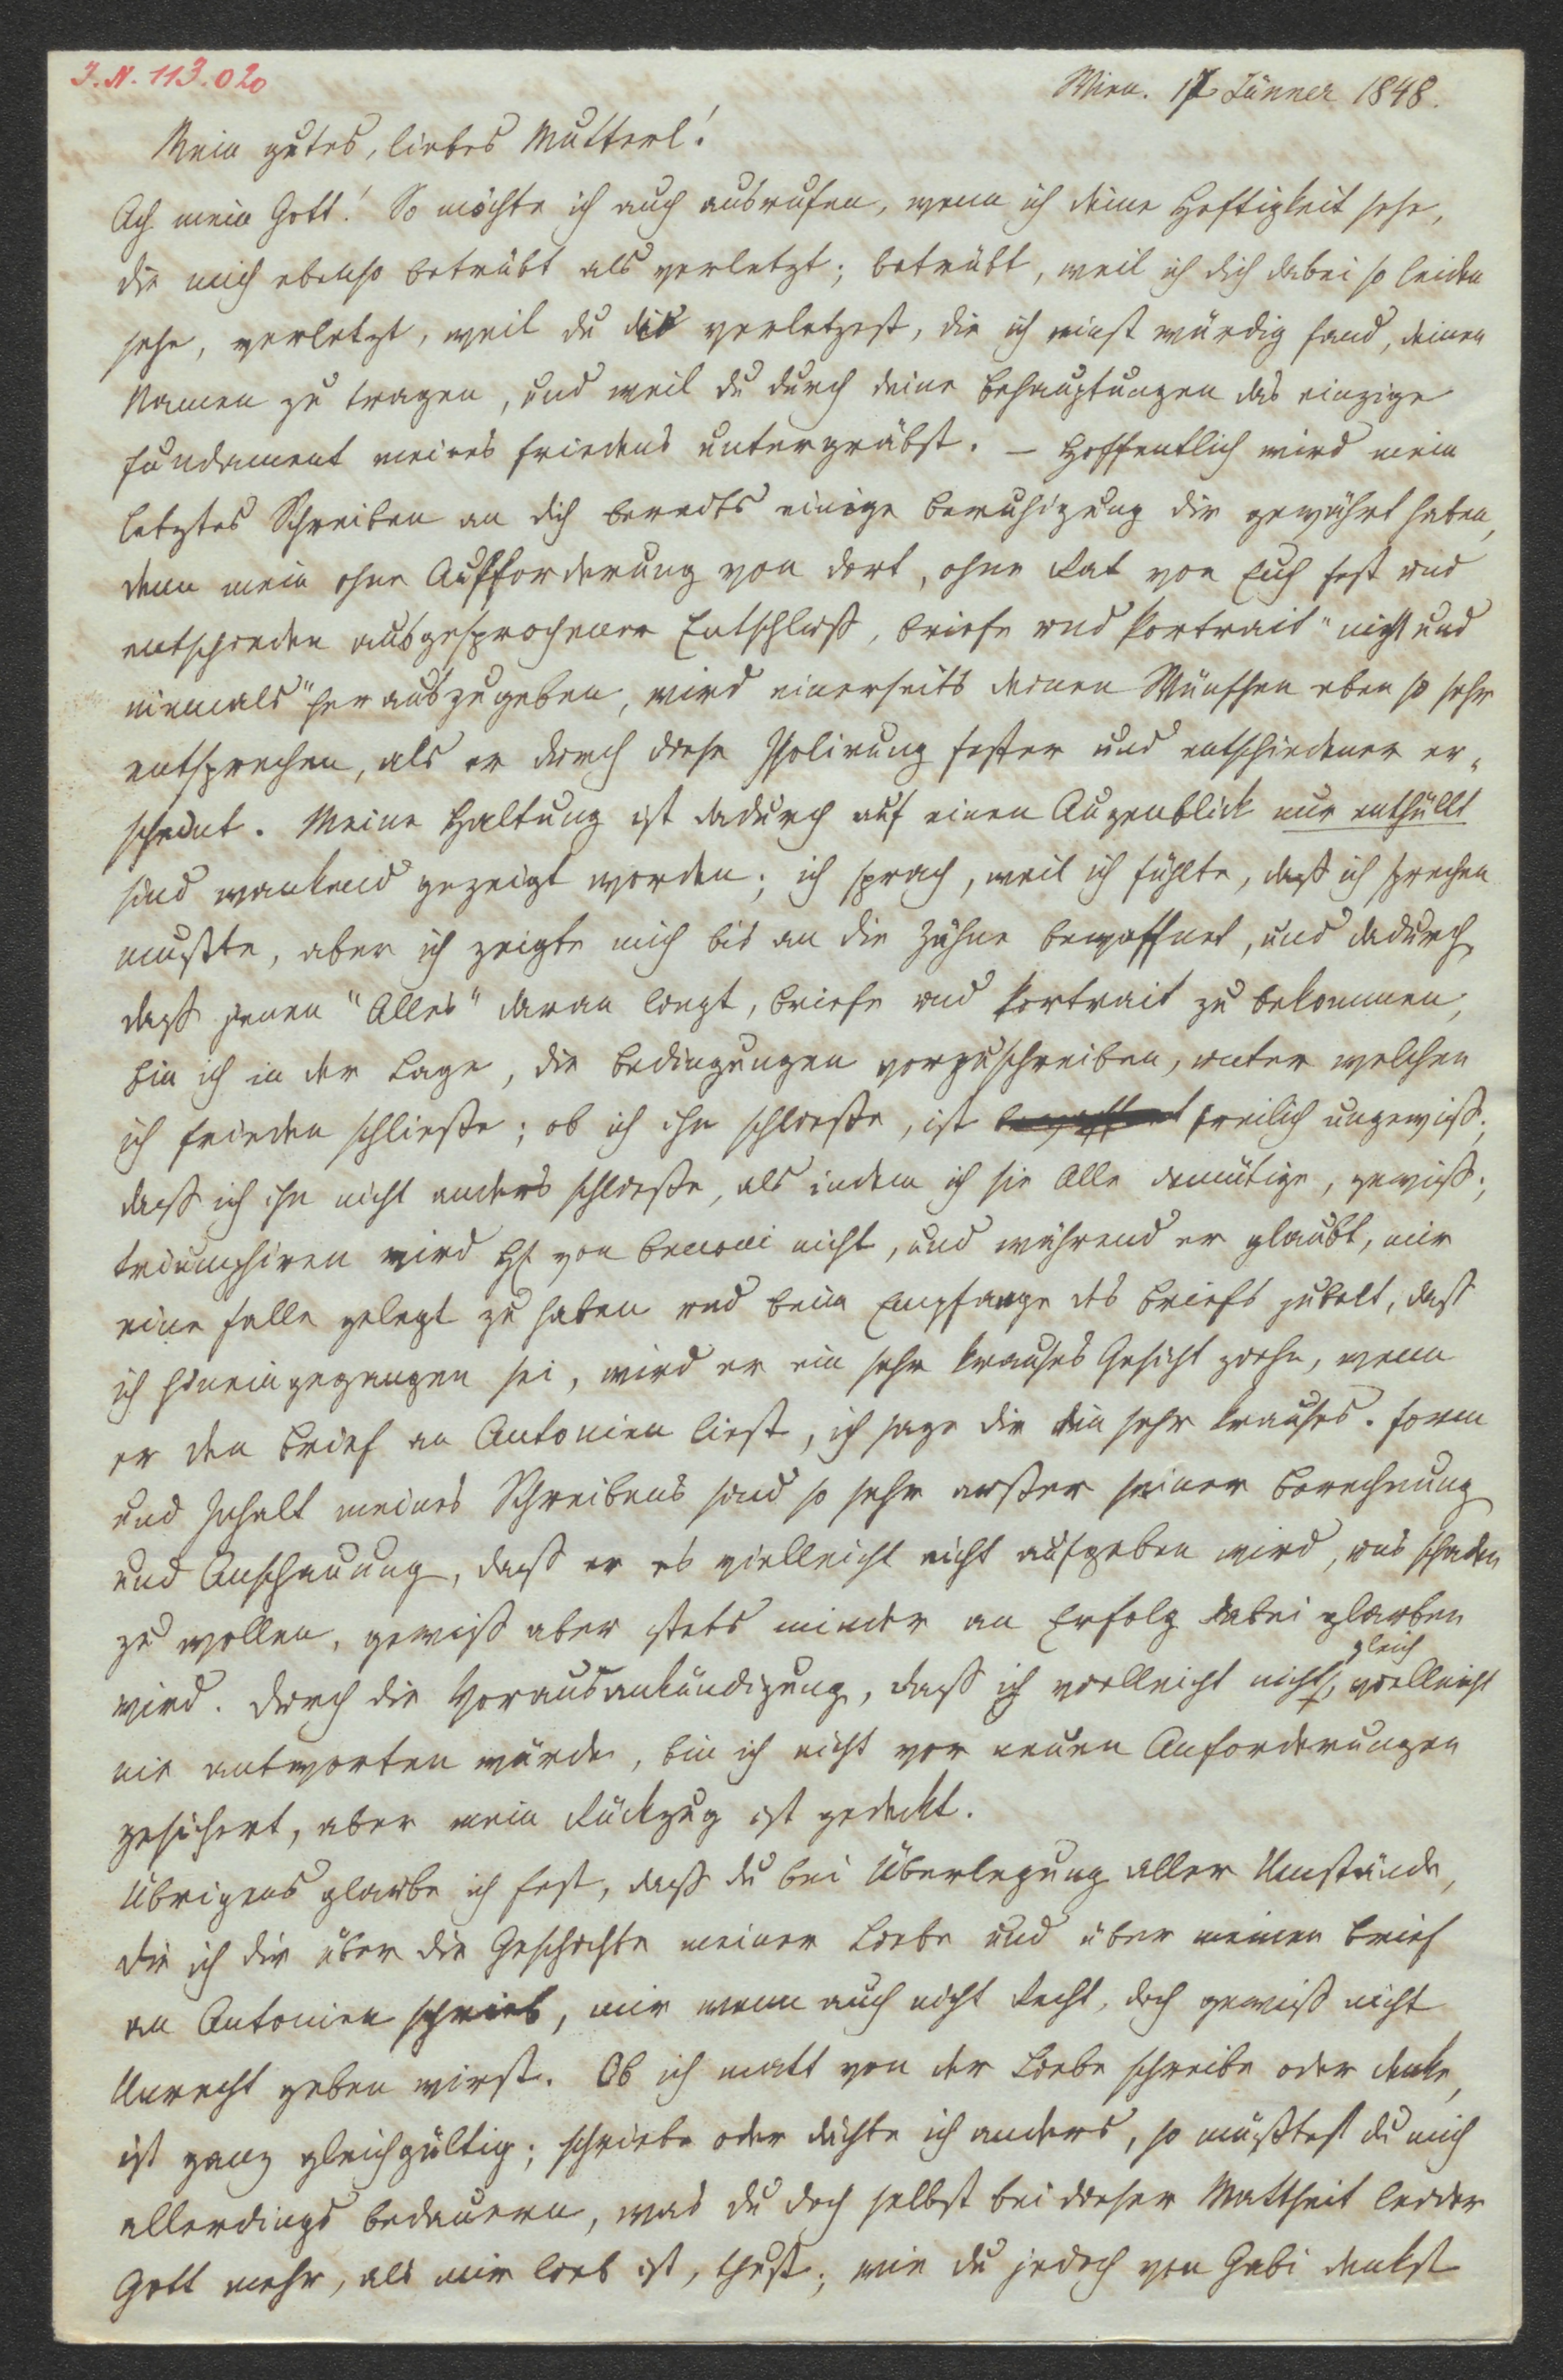 J. N. 113.020
Wien. 17 Jänner 1848.
Mein gutes, liebes Mutterl!
Ach mein Gott! So möchte ich auch ausrufen, wenn ich deine Heftigkeit sehe,
die mich ebenso betrübt als verletzt; betrübt, weil ich dich dabei so leiden
sehe, verletzt, weil du die verletzest, die ich einst würdig fand, deinen
Namen zu tragen, und weil du durch deine Behauptungen das einzige
Fundament meines Friedens untergräbst. – Hoffentlich wird mein
letztes Schreiben an dich bereits einige Beruhigung dir gewährt haben,
denn mein ohne Aufforderung von dort, ohne Rat von Euch fest und
entschieden ausgesprochener Entschluß, Briefe und Portrait "nicht und
niemals" herauszugeben, wird einerseits deinen Wünschen eben so sehr
entsprechen, als er durch diese Isolirung fester und entschiedener er=
scheint. Meine Haltung ist dadurch auf einen Augenblick nur enthüllt
und wankend gezeigt worden; ich sprach, weil ich fühlte, daß ich sprechen
mußte, aber ich zeigte mich bis an die Zähne bewaffnet, und dadurch,
daß jenen "Alles" daran liegt, Briefe und Portrait zu bekommen,
bin ich in der Lage, die Bedingungen vorzuschreiben, unter welchen
ich Frieden schließe; ob ich ihn schließe, ist freilich ungewiß;
daß ich ihn nicht anders schließe, als indem ich sie Alle demütige, gewiß;
triumphiren wird H. von Benoni nicht, und während er glaubt, mir
eine Falle gelegt zu haben und beim Empfange des Briefs jubelt, daß
ich hineingegangen sei, wird er ein sehr krauses Gesicht ziehn, wenn
er den Brief an Antonien liest, ich sage dir ein sehr krauses. Form
und Inhalt meines Schreibens sind so sehr außer seiner Berechnung
und Anschauung, daß er es vielleicht nicht aufgeben wird, uns schaden
zu wollen, gewiß aber stets minder an Erfolg dabei glauben
wird. Durch die Vorausankündigung, daß ich vielleicht nicht gleich, vielleicht
nie antworten würde, bin ich nicht vor neuen Anforderungen
gesichert, aber mein Rückzug ist gedeckt.
Übrigens glaube ich fest, daß du bei Überlegung aller Umstände,
die ich dir über die Geschichte meiner Liebe und über meinen Brief
an Antonien schrieb, mir wenn auch nicht Recht, doch gewiß nicht
Unrecht geben wirst. Ob ich matt von der Liebe schreibe oder denke,
ist ganz gleichgültig; schriebe oder dächte ich anders, so müßtest du mich
allerdings bedauern, was du doch selbst bei dieser Mattheit leider
Gott mehr, als mir lieb ist, thust; wie du jedoch von Gabi denkst